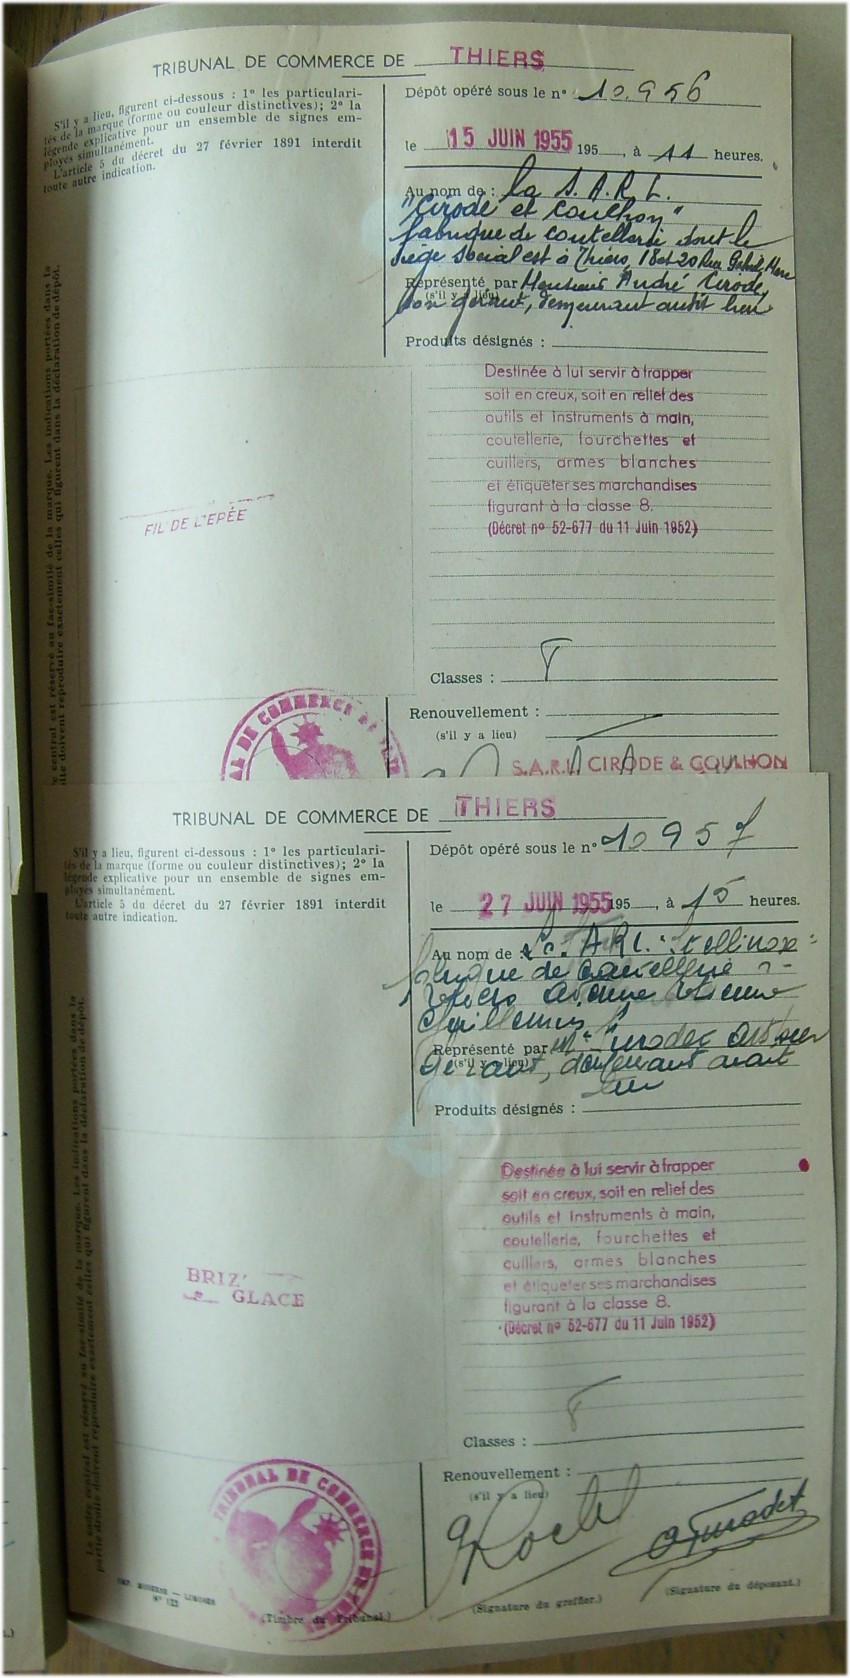 TRIBUNAL DE COMMERCE DE THIERS
S'il y a lieu, figurent ci-dessous : 1° les particulari-
tés de la marque (forme ou couleur distinctives); 2° la
légende explicative pour un ensemble de signes em-
ployés simultanément.
L'article 5 du décret du 27 février 1891 interdit
toute autre indication.
Dépôt opéré sous le n° 10.956
le 15 JUIN 1955 195 , à 11 heures.
Au nom de : la S.A.R.L.
"Cirode et Coulhon"
fabrique de coutellerie dont le
siège social est à Thiers, 18 et 20 Rue
Représenté par Monsieur André Cirode,
(s'il y a lieu)
son gérant, demeurant audit lieu
Produits désignés :
Destinée à lui servir à frapper
soit en creux, soit en relief des
outils et instruments à main,
coutellerie, fourchettes et
cuillers, armes blanches
et étiqueter ses marchandises
figurant à la classe 8.
(Décret nº 52-677 du 11 Juin 1952)
FIL DE L'EPÉE
Classes : 8
Renouvellement :
(s'il y a lieu)
S.A.R.L. CIRODE & COULHON
central est réservé au fac-similé de la marque. Les indications portées dans la
doivent reproduire exactement celles qui figurent dans la déclaration de dépôt.
TRIBUNAL DE COMMERCE DE THIERS
S'il y a lieu, figurent ci-dessous : 1° les particulari-
tés de la marque (forme ou couleur distinctives); 2° la
légende explicative pour un ensemble de signes em-
ployés simultanément.
L'article 5 du décret du 27 février 1891 interdit
toute autre indication.
Dépôt opéré sous le n° 10957
le 27 JUIN 1955 195 , à 15 heures.
Au nom de
fabrique de coutellerie
avenue
Représenté par
(s'il y a lieu)
gérant, demeurant
lieu
Produits désignés :
Destinée à lui servir à frapper
soit en creux, soit en relief des
outils et instruments à main,
coutellerie, fourchettes et
cuillers, armes blanches
et étiqueter ses marchandises
figurant à la classe 8.
(Décret nº 52-677 du 11 Juin 1952)
BRIZ'
GLACE
Classes : 8
Renouvellement :
(s'il y a lieu)
Le cadre central est réservé au fac-similé de la marque. Les indications portées dans la
partie droite doivent reproduire exactement celles qui figurent dans la déclaration de dépôt.
TRIBUNAL DE COMMERCE
(Timbre du Tribunal.)
(Signature du greffier.)
(Signature du déposant.)